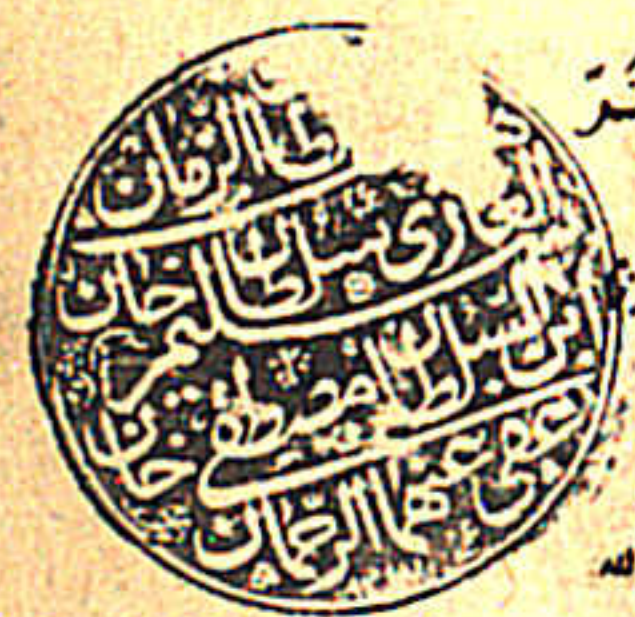 سلطان الزمان
الغازي سلطان سليم خان
ابن السلطان مصطفى خان
عفى عنهما الرحمان
الله